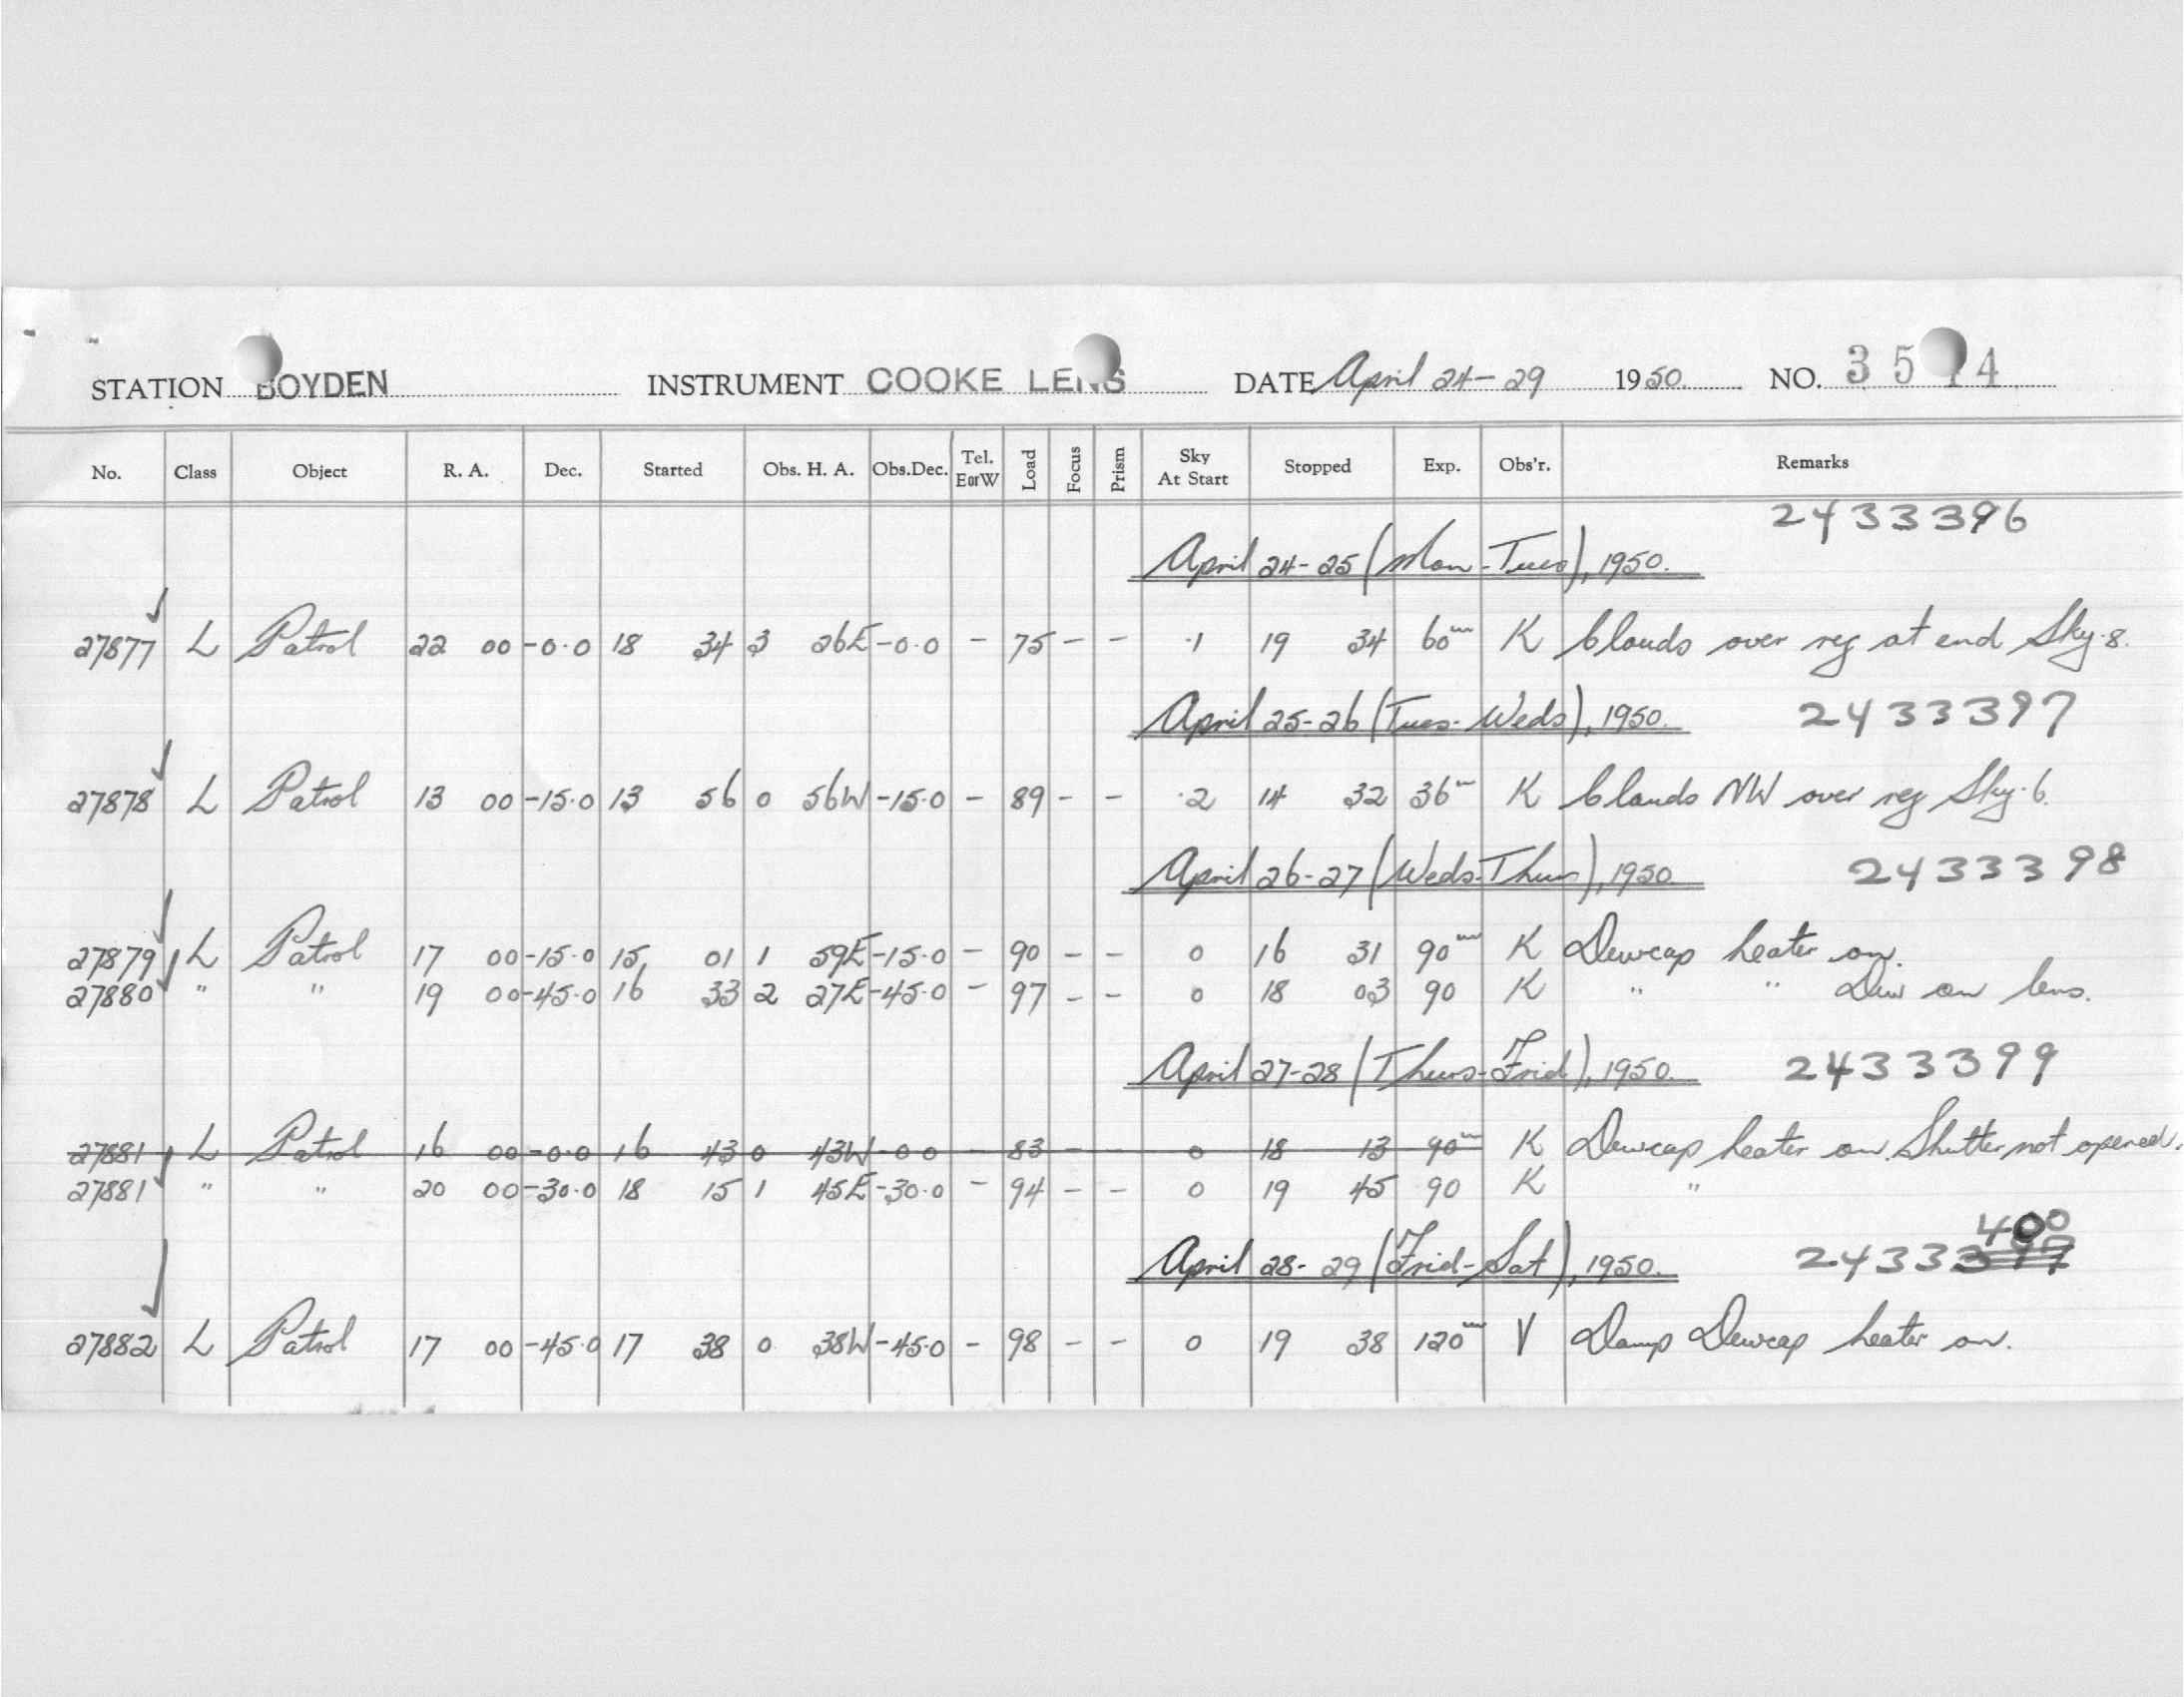 STATION BOYDEN INSTRUMENT COOKE LENS DATE April 24-29 1950. NO. 35 4
No. Class Object R. A. Dec. Started Obs. H. A. Obs.Dec. Tel. EorW Load Focus Prism Sky At Start Stopped Exp. Obs'r. Remarks
2433396
April 24-25 (Mon-Tues), 1950.
27877 L Patrol 22 00 -0.0 18 34 3 26E -0.0 - 75 - - .1 19 34 60m K Clouds over reg at end Sky .8.
April 25-26 (Tues-Weds), 1950. 2433397
27878 L Patrol 13 00 -15.0 13 56 0 56W -15.0 - 89 - - .2 14 32 36m K Clouds NW over reg Sky .6.
April 26-27 (Weds-Thurs), 1950. 2433398
27879 L Patrol 17 00 -15.0 15 01 1 59E -15.0 - 90 - - 0 16 31 90m K Dewcap heater on.
27880 " " 19 00 -45.0 16 33 2 27E -45.0 - 97 - - 0 18 03 90 K " " Dew on lens.
April 27-28 (Thurs-Frid), 1950. 2433399
27881 L Patrol 16 00 -0.0 16 43 0 43W -0.0 - 83 - - 0 18 13 90m K Dewcap heater on. Shutter not opened.
27881 " " 20 00 -30.0 18 15 1 45E -30.0 - 94 - - 0 19 45 90 K "
400
April 28-29 (Frid-Sat), 1950. 2433397
27882 L Patrol 17 00 -45.0 17 38 0 38W -45.0 - 98 - - 0 19 38 120m V Damp Dewcap heater on.